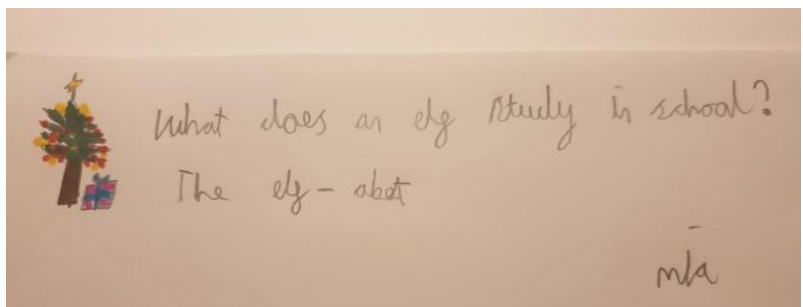 What does an elf study in school?
The elf-abet